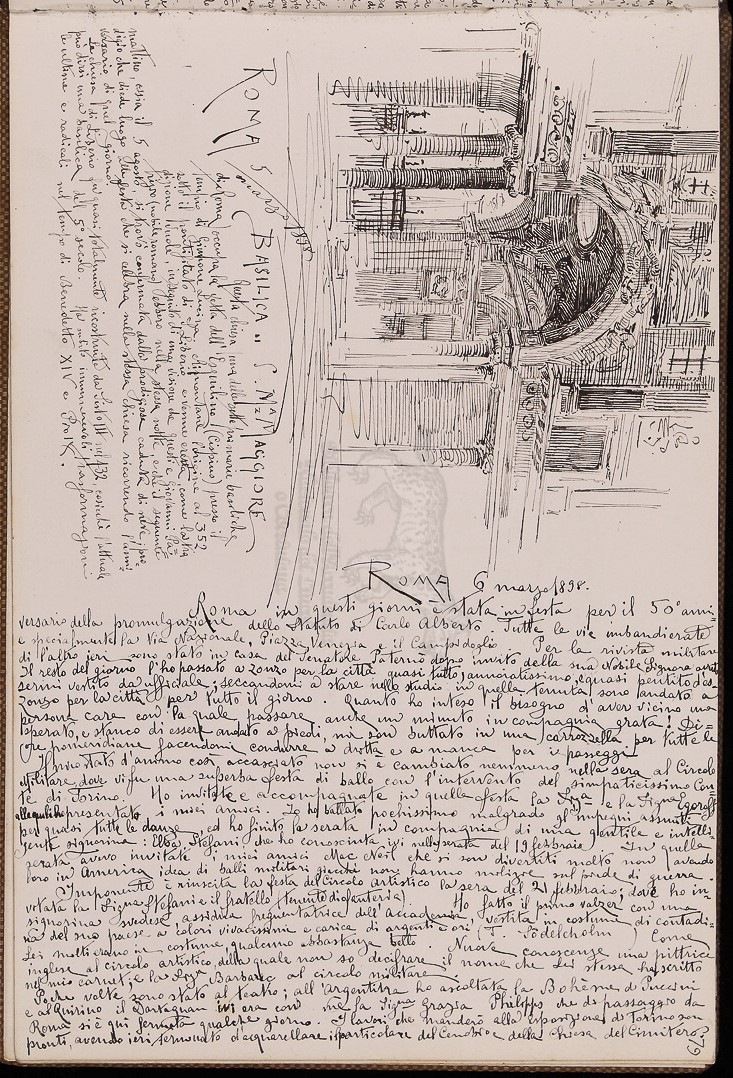 ROMA 5 marzo 1898
BASILICA di S. Ma MAGGIORE
Questa chiesa una delle sette primarie basiliche
di Roma occupa la vetta dell'Esquilino (Cispius) presso il
di Giunone Lucina
sotto il pontificato di S. Liberio e venne eretta, come la tra
dizione vuole, in seguito di una visione da questi e Giovanni Pa=
trizio (nobile romano) ebbero nella stessa notte e che il seguente
mattino, ossia il 5 agosto si trovò confermata dalla prodigiosa caduta di neve (pro
digio che diede luogo alla festa che si celebra nella stessa chiesa ricorrendo l'anni
versario di quel giorno)
La chiesa di Liberio fu quasi totalmente ricostruita da Sisto III nel 432 cosicchè l'attuale
può dirsi una basilica del 5° secolo. Ha subito innumerevoli trasformazioni
le ultime e radicali nel tempo di Benedetto XIV e Pio IX.
ROMA 6 marzo 1898.
Roma in questi giorni è stata in festa per il 50° anni=
versario della promulgazione dello Statuto di Carlo Alberto. Tutte le vie imbandierate
e specialmente la Via Nazionale, Piazza Venezia e il Campidoglio. Per la rivista militare
di l'altro ieri sono stato in casa del Senatore Paternò dopo invito della sua Nobile Signora
Il resto del giorno l'ho passato a zonzo per la città quasi tutto annoiatissimo, e quasi pentito d'es=
sermi vestito da ufficiale; seccandomi a stare nello studio in quella tenuta, sono andato a
zonzo per la città per tutto il giorno. Quanto ho inteso il bisogno d'aver vicino una
persona cara con la quale passare anche un minuto in compagnia grata! Di=
sperato, e stanco di essere andato a piedi, mi son buttato in una carrozzella per tutte le
ore pomeridiane facendomi condurre a dritta e a manca per i passeggi.
Il mio stato d'animo così accasciato non si è cambiato nemmeno nella sera al Circolo
Militare, dove vi fu una superba festa di ballo con l'intervento del simpaticissimo Con=
te di Torino. Ho invitate e accompagnate in quella festa la Siga e la Signa Egoroff
alle quali ho presentato i miei amici. Io ho ballato pochissimo malgrado gl'impegni assunti
per quasi tutte le danze, ed ho finito la serata in compagnia di una gentile e intelli=
gente signorina: Elba Stefani che ho conosciuta ivi nella serata del 19 febbraio. In quella
serata avevo invitate i miei amici Mac Neil che si son divertiti molto non avendo
loro in America idea di balli militari giacchè non hanno milizie sul piede di guerra.
Imponente è riuscita la festa del Circolo Artistico la sera del 21 febbraio; dove ho in=
vitata la Signa Stefani e il fratello (tenente di fanteria). Ho fatto il primo valzer con una
signorina svedese, assidua frequentatrice dell'accademia, vestita in costume di contadi=
na del suo paese a colori vivacissimi e carica di argenti e ori (T. Södelcholm) Come
lei molti erano in costume, qualcuno abbastanza bello. Nuove conoscenze una pittrice
inglese al circolo artistico, della quale non so decifrare il nome che lei stessa ha scritto
nel mio carnet; e la Siga Barbaro al circolo militare.
Poche volte sono stato al teatro; all'Argentina ho ascoltata la Bohème di Puccini
e al Quirino il Dartagnan ivi era con me la Signa Grazia Philipps che di passaggio da
Roma si è qui fermata qualche giorno. I lavori che manderò alla esposizione di Torino son
pronti, avendo ieri terminato d'acquarellare i particolari del Cenobio e della Chiesa del Cimitero.
79